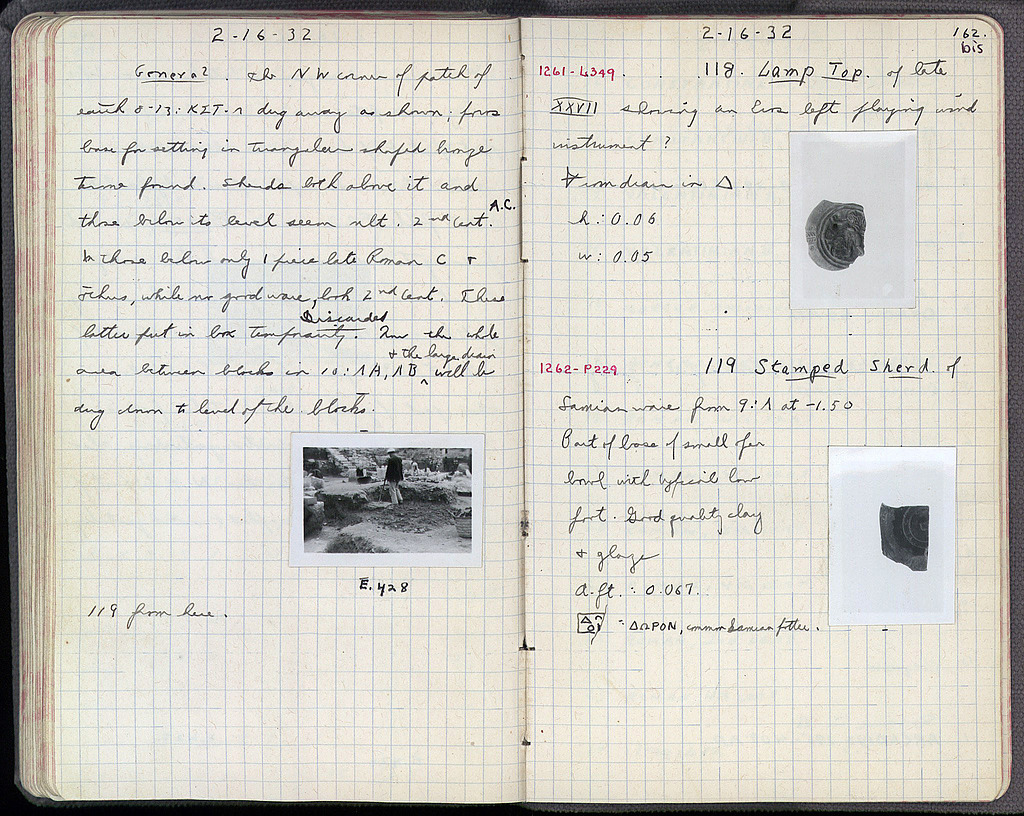 2-16-32
General. The NW corner of patch of
earth 8-13: ΚΣΤ-Λ dug away as shown; fours
base for setting in triangular shaped bronze
frame found. Sherds both above it and
those below its level seem ult. 2nd Cent. A.C.
In those below only 1 piece late Roman C +
, while no good ware, look 2nd Cent. These
latter put in box temporarily. Discarded Now the whole
area between blocks in 10: ΛA, ΛB & the large drain will be
dug down to level of the blocks.
E.428
119 from here.
2-16-32
162.
bis
1261-L349. 118. Lamp Top. of late
XXVII showing an Eros left playing wind
instrument?
From drain in Δ.
h: 0.06
w: 0.05
1262-P229 119 Stamped Sherd. of
Samian ware from 9:Λ at -1.50
Part of base of small open
bowl with typical low
foot. Good quality clay
& glaze
d.ft.: 0.067.
: ΔΩΡΟΝ, common Samian potter.